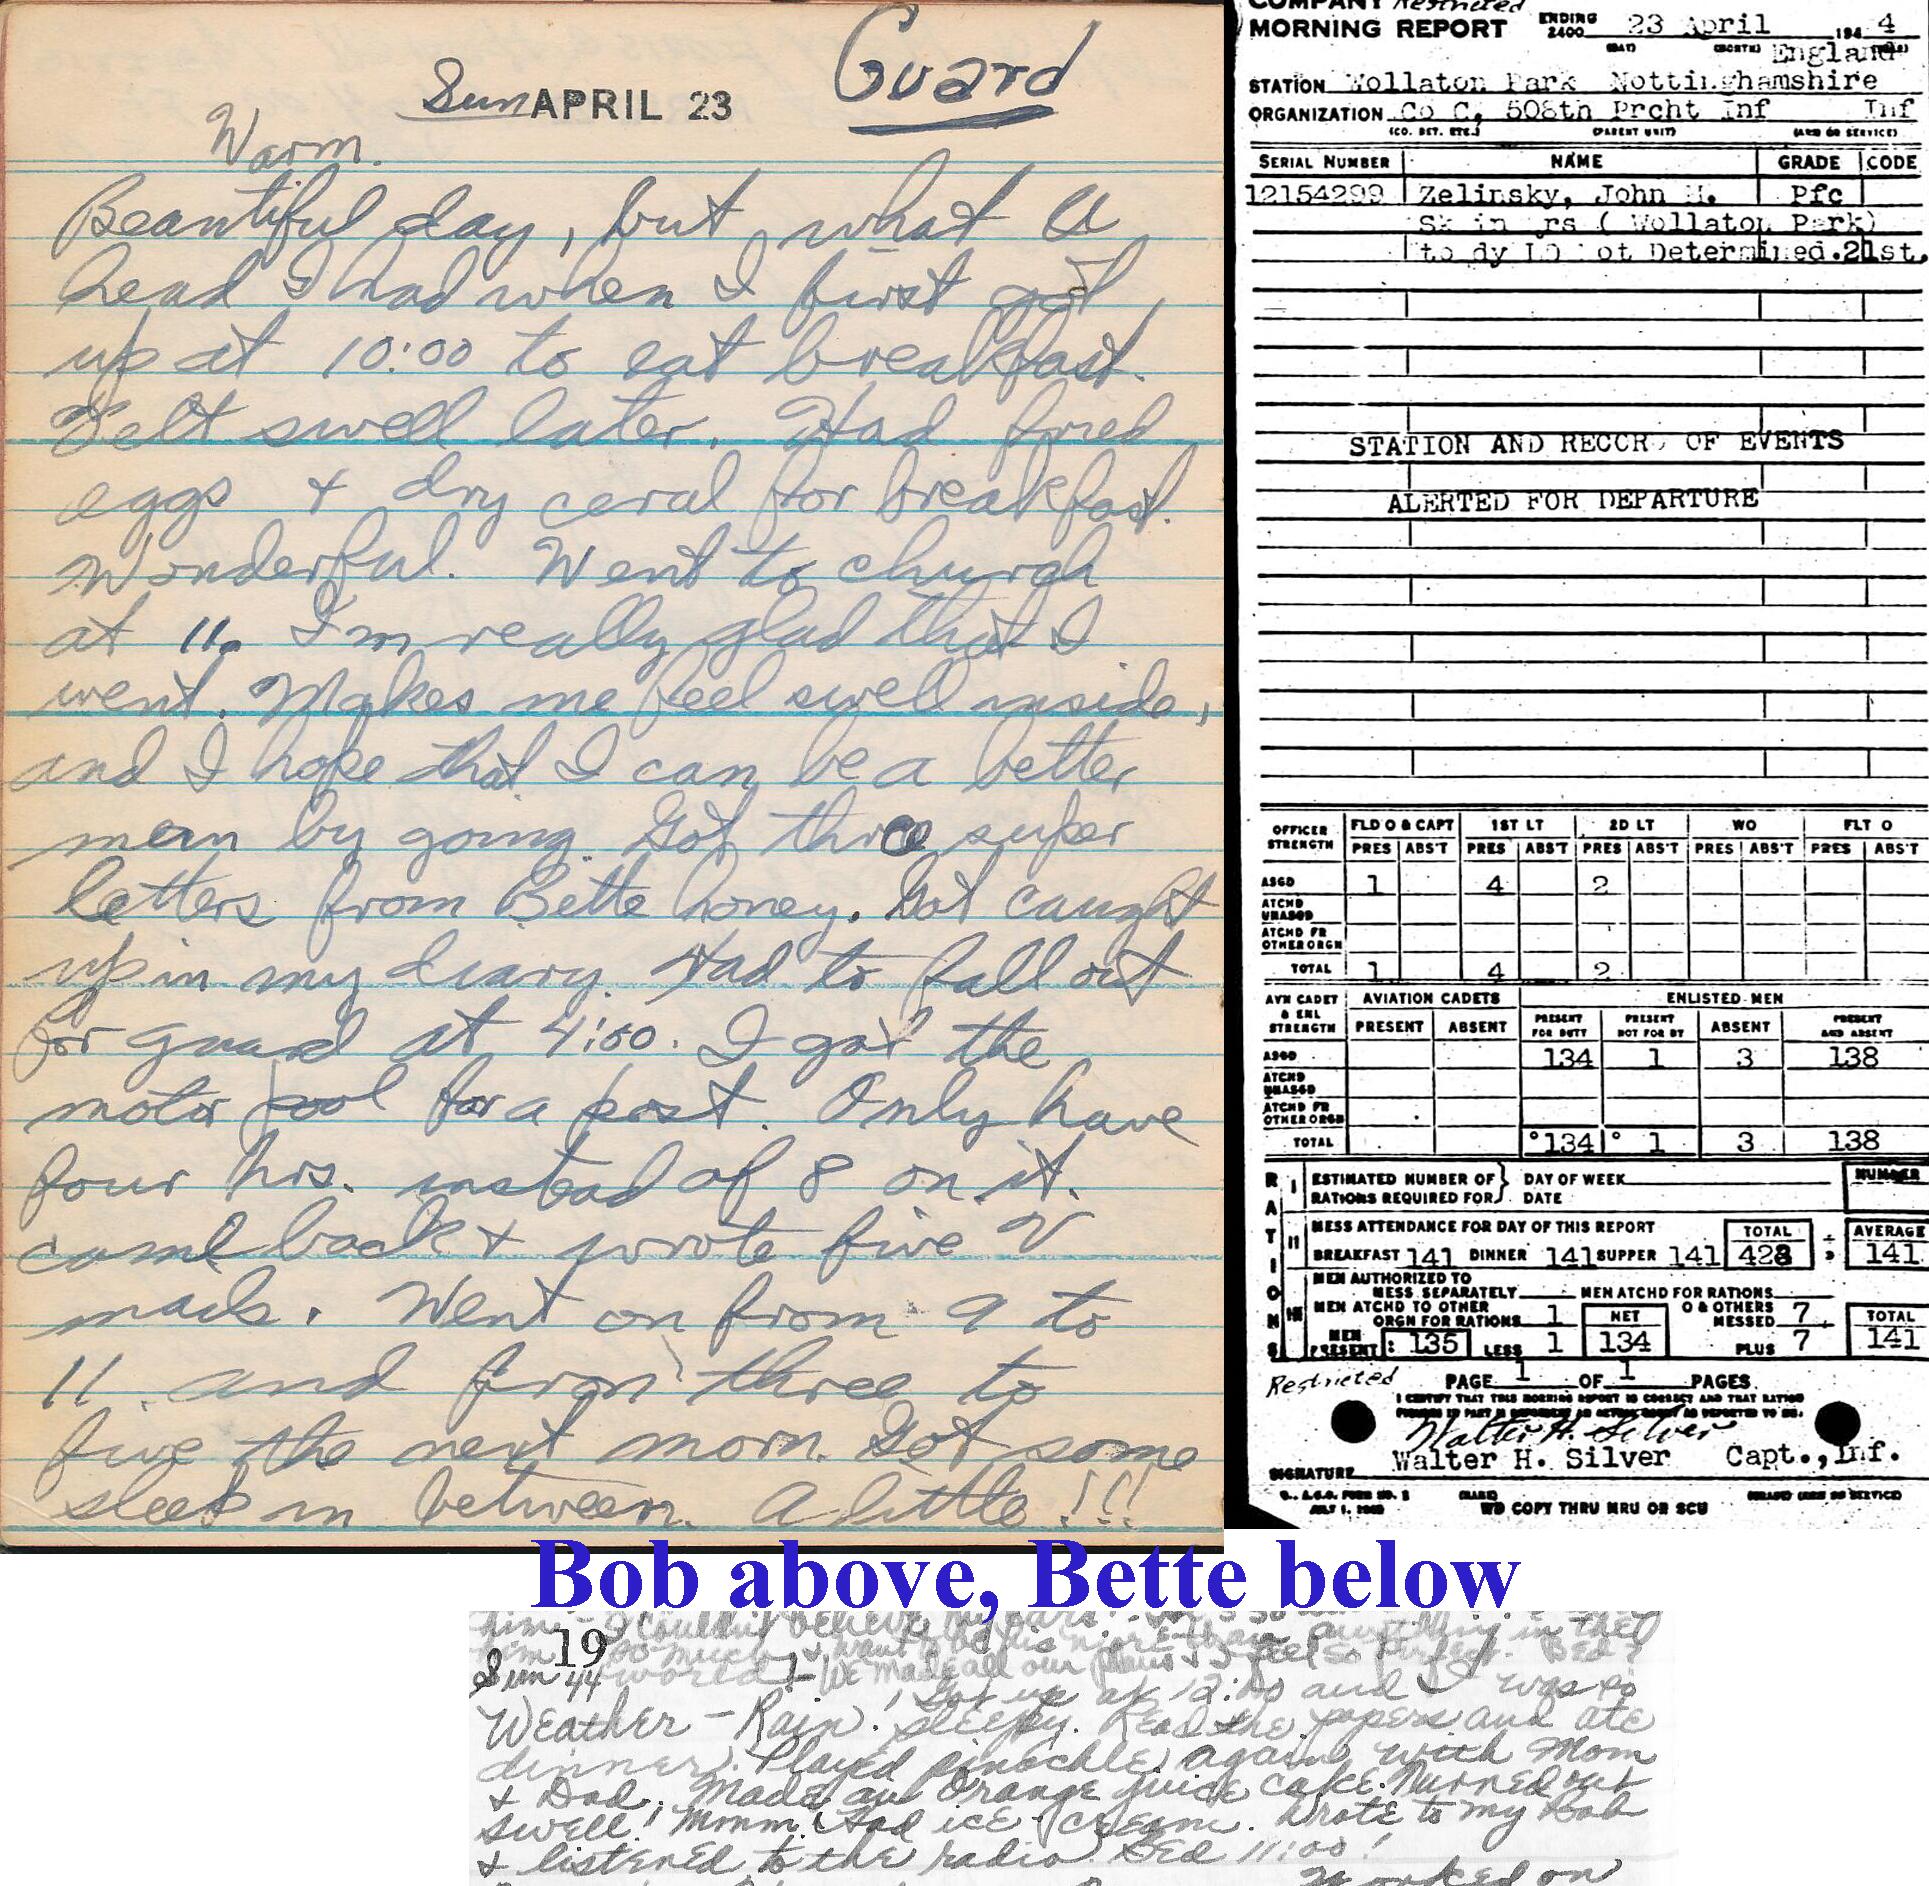 Guard
Sun APRIL 23
Warm.
Beautiful day, but what a
head I had when I first got
up at 10:00 to eat breakfast.
Felt swell later. Had fried
eggs + dry ceral for breakfast.
Wonderful. Went to church
at 11. I'm really glad that I
went. Makes me feel swell inside,
and I hope that I can be a better
man by going. Got three super
letters from Bette honey. Got caught
up in my diary. Had to fall out
for guard at 4:50. I got the
motor pool for a post. Only have
four hrs. instead of 8 on it.
came back + wrote five V
mails. Went on from 9 to
11 and from three to
five the next morn. Got some
sleep in between. A little!!!
COMPANY Restricted
MORNING REPORT ENDING 2400 23 April 194 4
(DAY) (MONTH)
England
STATION Wollaton Park Nottinghamshire
ORGANIZATION Co C, 508th Prcht Inf Inf
(CO. DET. ETC.) (PARENT UNIT) (ARM OR SERVICE)
SERIAL NUMBER NAME GRADE CODE
12154299 Zelinsky, John Pfc
Sk in rs (Wollaton Park)
to dy LD ot Determined.21st.
STATION AND RECORD OF EVENTS
ALERTED FOR DEPARTURE
OFFICER STRENGTH FLD O & CAPT 1ST LT 2D LT WO FLT O
PRES ABS'T PRES ABS'T PRES ABS'T PRES ABS'T PRES ABS'T
ASGD 1 4 2
ATCHD UNASGD
ATCHD FR OTHER ORGN
TOTAL 1 4 2
AVN CADET & ENL STRENGTH AVIATION CADETS ENLISTED MEN
PRESENT ABSENT PRESENT FOR DUTY PRESENT NOT FOR DY ABSENT PRESENT AND ABSENT
ASGD 134 1 3 138
ATCHD UNASGD
ATCHD FR OTHER ORGN
TOTAL °134 ° 1 3 138
RATIONS
I ESTIMATED NUMBER OF RATIONS REQUIRED FOR DAY OF WEEK DATE NUMBER
II MESS ATTENDANCE FOR DAY OF THIS REPORT TOTAL ÷ AVERAGE
BREAKFAST 141 DINNER 141 SUPPER 141 423 3 141
III MEN AUTHORIZED TO MESS SEPARATELY MEN ATCHD FOR RATIONS
MEN ATCHD TO OTHER ORGN FOR RATIONS 1 NET O & OTHERS MESSED 7 TOTAL
MEN PRESENT: 135 LESS 1 134 PLUS 7 141
Restricted PAGE 1 OF 1 PAGES
I CERTIFY THAT THIS MORNING REPORT IS CORRECT AND THAT RATION
Walter H. Silver
Walter H. Silver Capt., Inf.
SIGNATURE
JULY 1, (NAME)
WD COPY THRU MRU OR SCU
Bob above, Bette below
him - I couldn't believe my ears!
him so much + want to be his more than anything in the
19
Sun 44 world! - We made all our plans + I feel so perfect. Bed ?
Weather - Rain! Got up at 12:00 and I was so
sleepy. Read the papers and ate
dinner. Played pinochle again with Mom
+ Dad. Made an Orange juice cake. Turned out
swell! Mmm. Had ice cream. Wrote to my Bob
+ listened to the radio. Bed 11:00!
Worked on